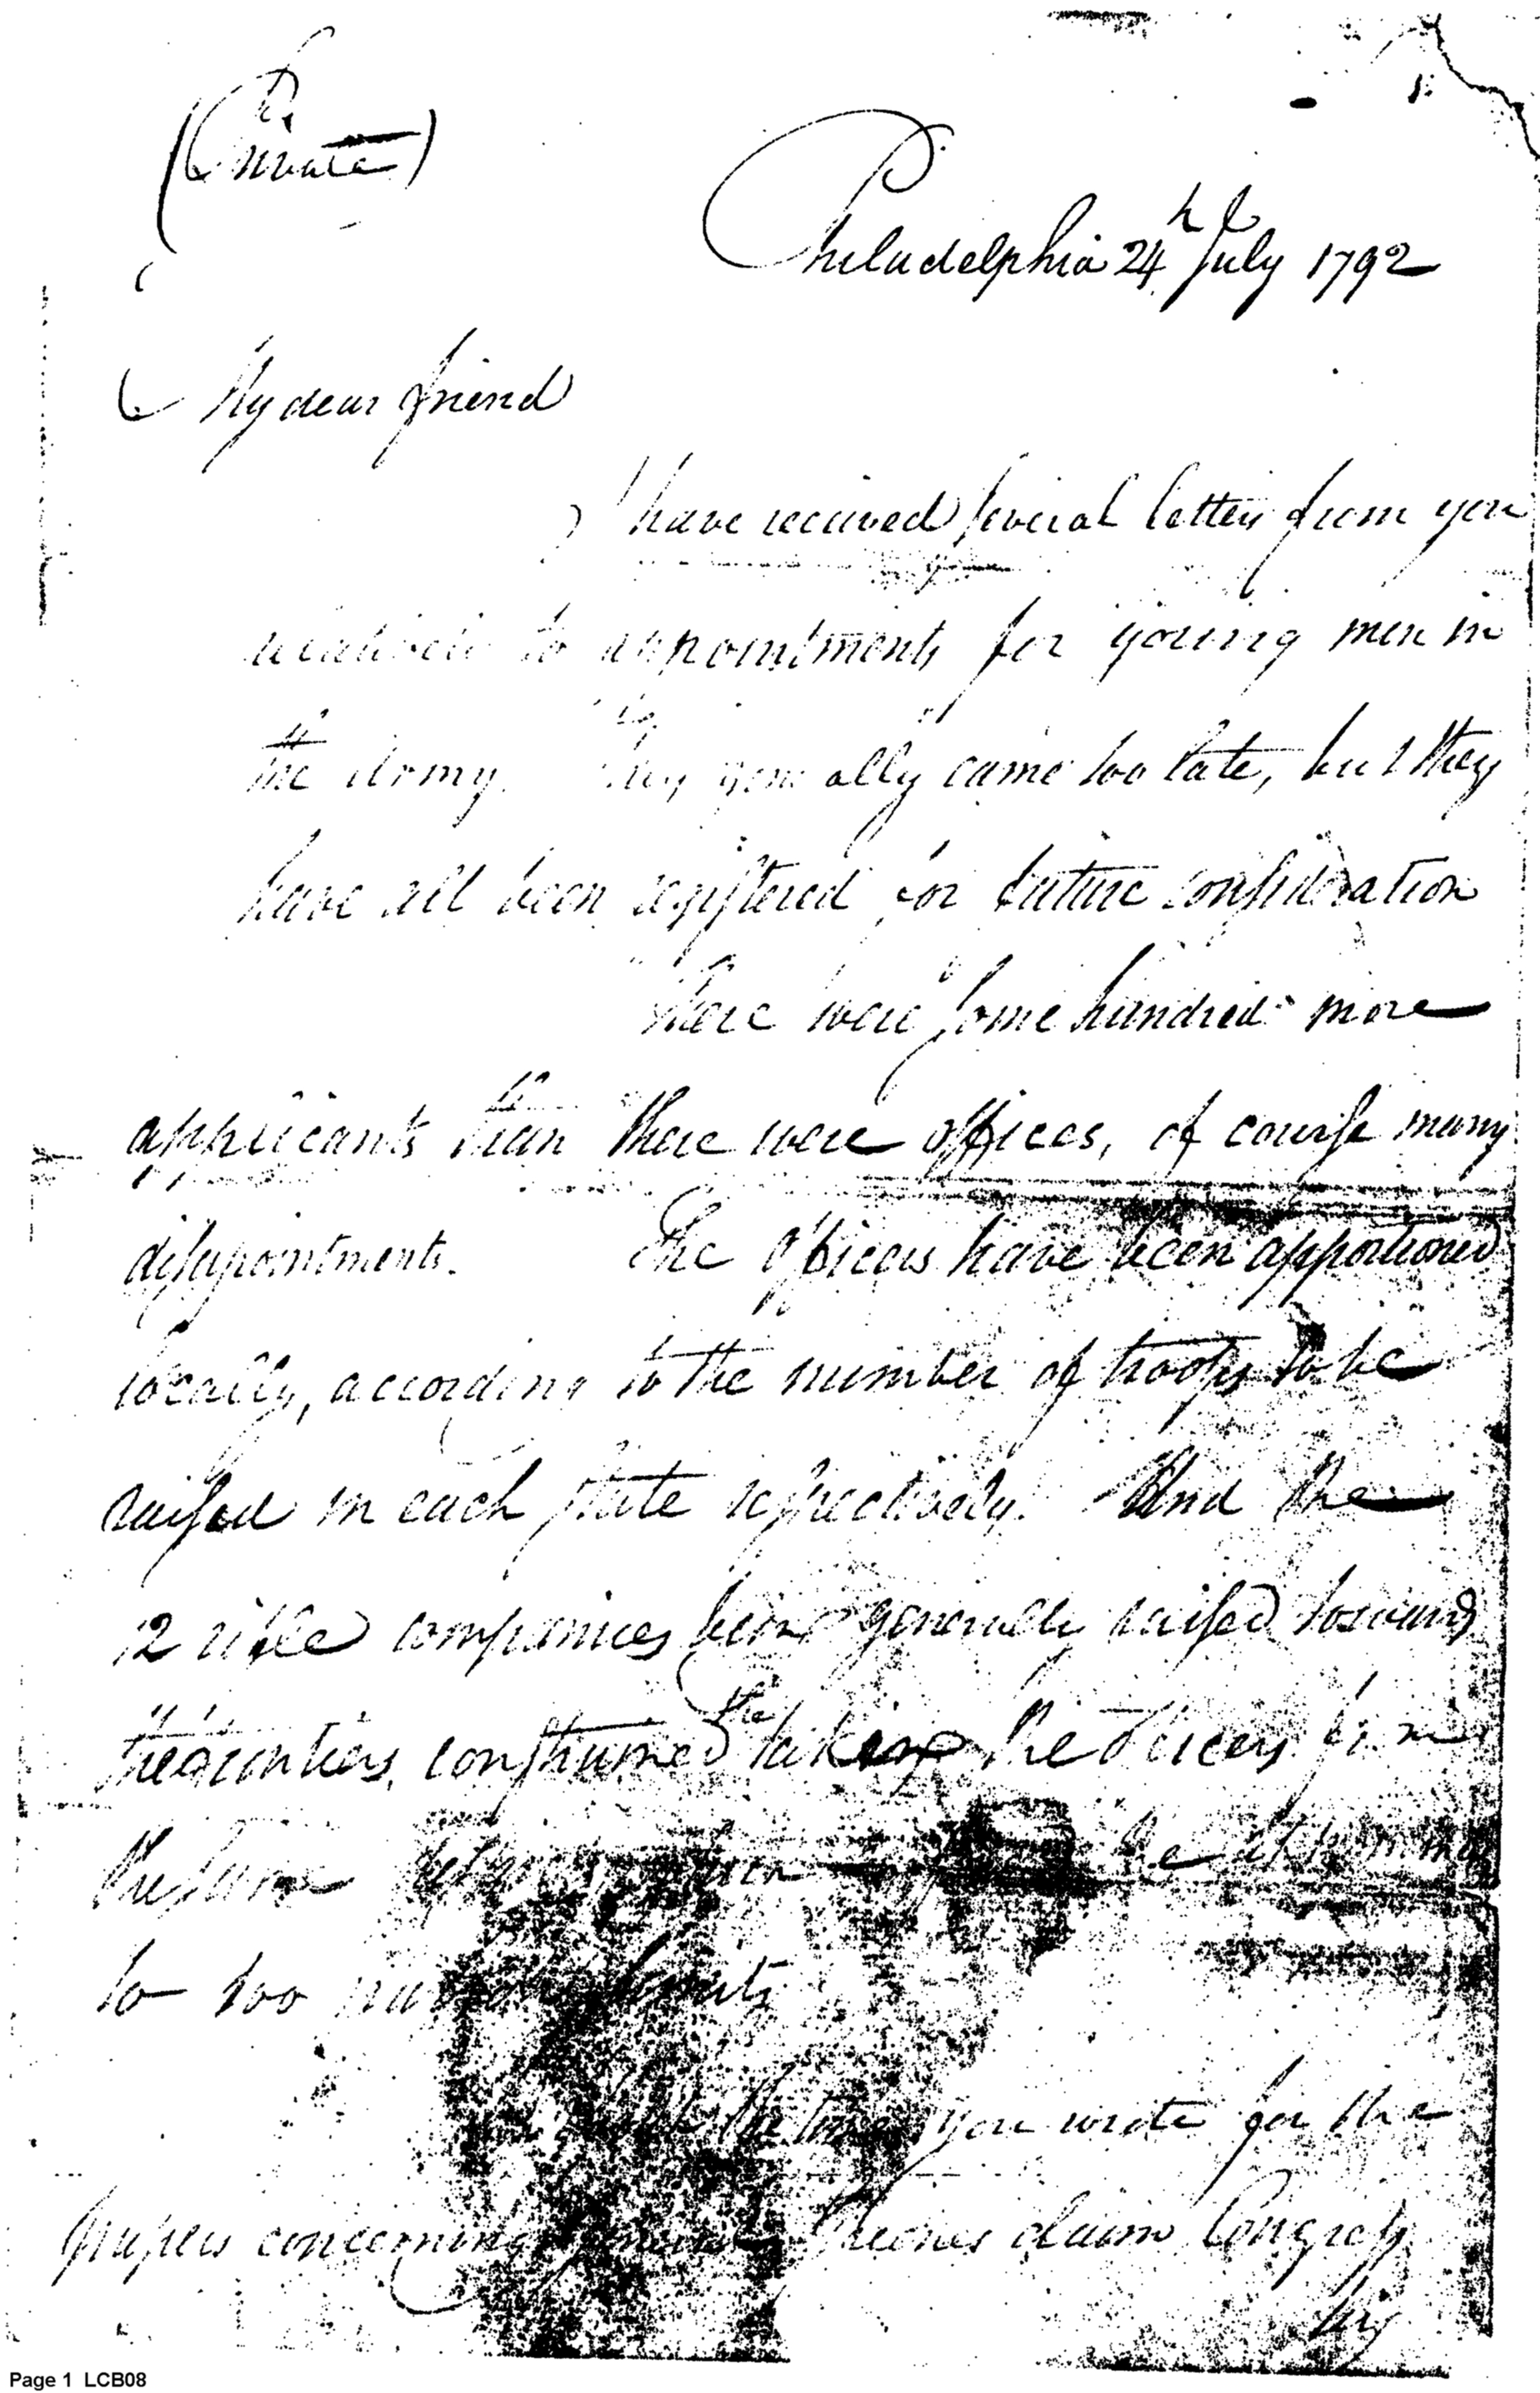 (Private)
Philadelphia 24th July 1792
My dear friend
I have received several letters from you
relative to appointments for young men in
the army. They generally came too late, but they
have all been registered for future consideration
There were some hundred more
applicants than there were offices, of course many
disapointments. The officers have been apportioned
locally, according to the number of troops to be
raised in each state respectively. And the
12 rifle companies being generally raised toward
the frontiers, constrained the taking the officers from
the same
to too narrow limits
the time you wrote for the
papers concerning Greenes claim Congress
Page 1 LCB08